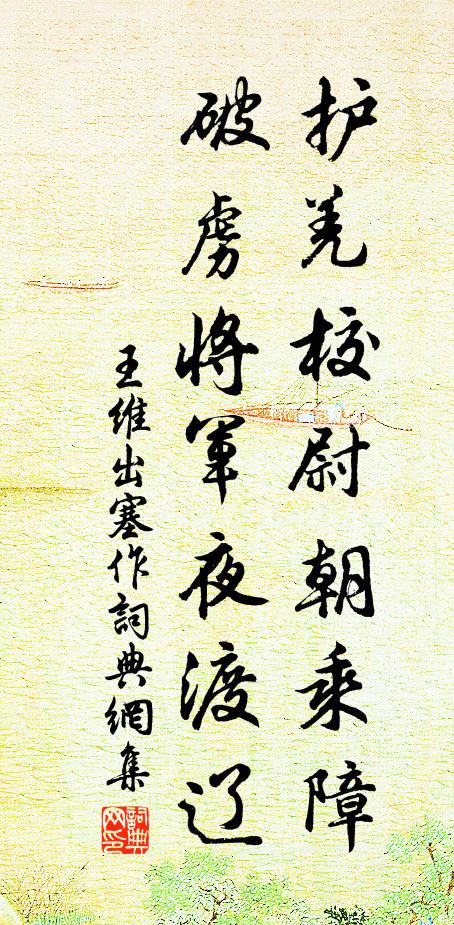 护羌校尉朝乘障
破虏将軍夜渡辽
王维出塞作詞典網集
詞典网印